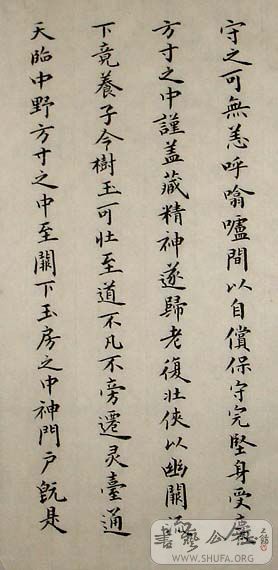 守之可無恙呼噏嚧間以自償保守完堅身受慶
方寸之中謹盖藏精神遂歸老復壯俠以幽闕流
下竟養子今樹玉可壯至道不凡不旁遷灵臺通
天臨中野方寸之中至關下玉房之中神門戶既是
WWW.SHUFA.ORG